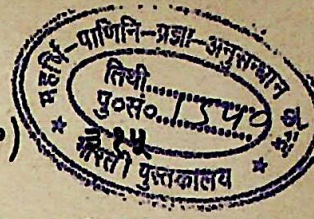 महर्षि-पाणिनि-प्रज्ञा-अनुसन्धान
तिथी..............
पु०सं०.1540
भारती पुस्तकालय
०)